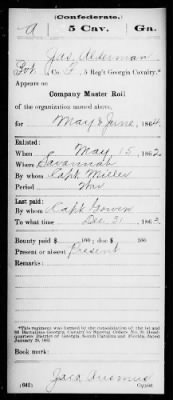 (Confederate.)
A 5 Cav. Ga.
Jas. Alderman
Pvt, Co. F, 5 Reg't Georgia Cavalry.*
Appears on
Company Muster Roll
of the organization named above,
for May & June, 1864.
Enlisted:
When May 15, 1862
Where Savannah
By whom Capt. Miller
Period War
Last paid:
By whom Capt. Gowen
To what time Dec 31, 1863.
Bounty paid $ 100; due $ 100
Present or absent Present
Remarks:
*This regiment was formed by the consolidation of the 1st and 2d Battalions Georgia Cavalry by Special Orders, No. 20, Headquarters District of Georgia, South Carolina and Florida, dated January 20, 1863.
Book mark:
(642) Copyist.